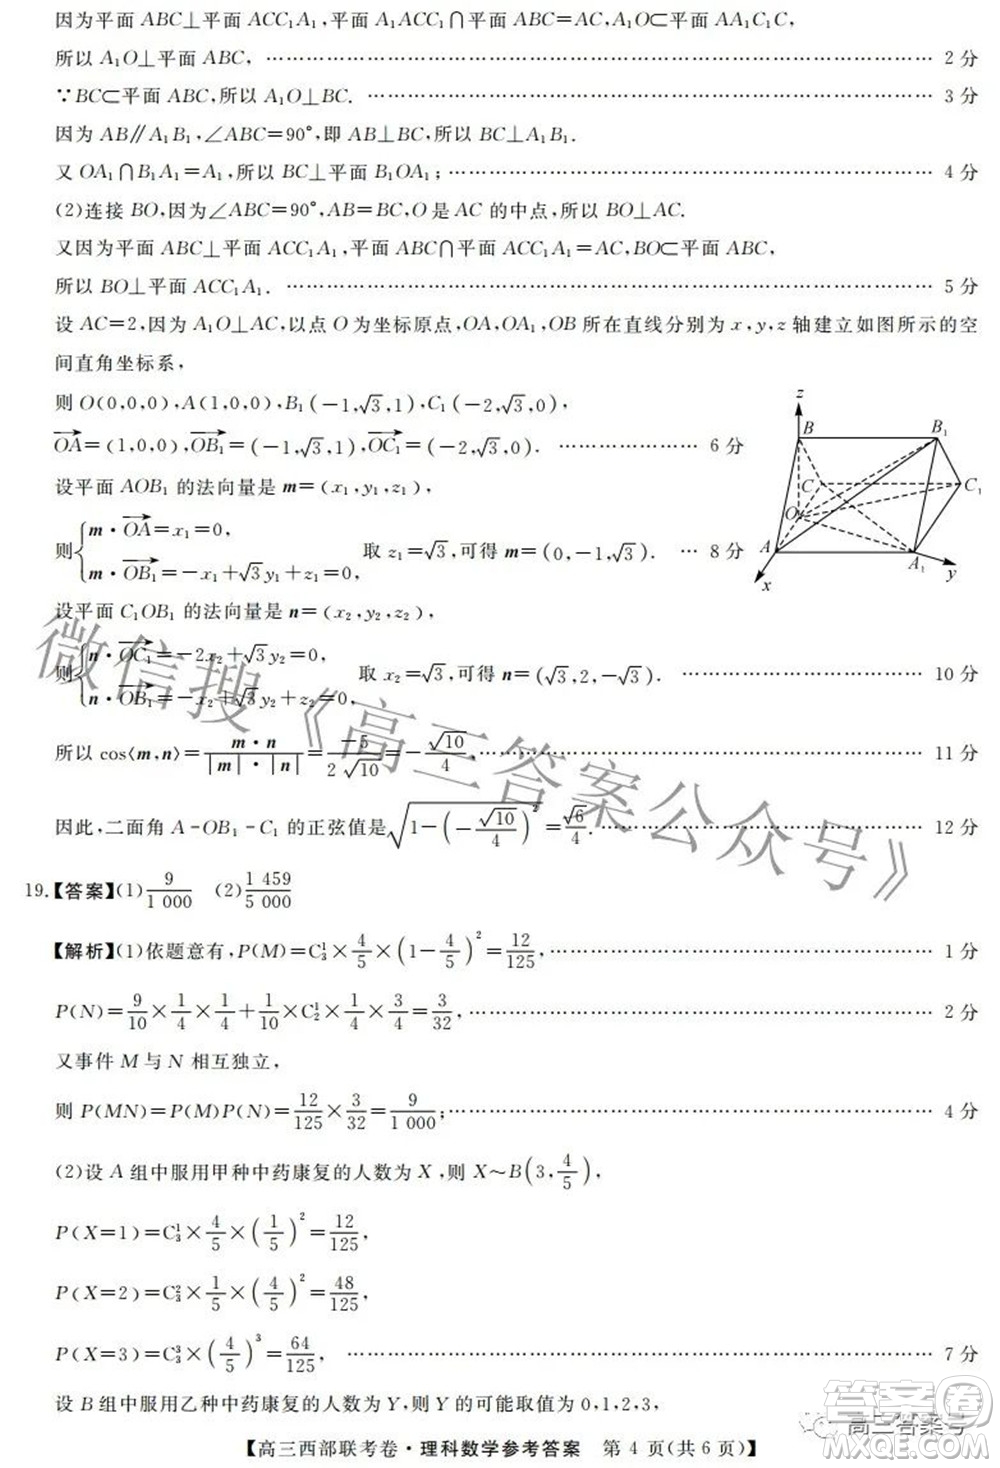 因为平面 ABC⊥平面 ACC₁A₁,平面 A₁ACC₁∩平面 ABC=AC,A₁O⊂平面 AA₁C₁C,
所以 A₁O⊥平面 ABC, …… 2 分
∵BC⊂平面 ABC,所以 A₁O⊥BC. …… 3 分
因为 AB∥A₁B₁,∠ABC=90°,即 AB⊥BC,所以 BC⊥A₁B₁.
又 OA₁∩B₁A₁=A₁,所以 BC⊥平面 B₁OA₁; …… 4 分
(2)连接 BO,因为∠ABC=90°,AB=BC,O 是 AC 的中点,所以 BO⊥AC.
又因为平面 ABC⊥平面 ACC₁A₁,平面 ABC∩平面 ACC₁A₁=AC,BO⊂平面 ABC,
所以 BO⊥平面 ACC₁A₁. …… 5 分
设 AC=2,因为 A₁O⊥AC,以点 O 为坐标原点,OA,OA₁,OB 所在直线分别为 x,y,z 轴建立如图所示的空
间直角坐标系,
则 O(0,0,0),A(1,0,0),B₁(-1,√3,1),C₁(-2,√3,0),
OA→=(1,0,0),OB₁→=(-1,√3,1),OC₁→=(-2,√3,0). …… 6 分
设平面 AOB₁ 的法向量是 m=(x₁,y₁,z₁),
则{m·OA→=x₁=0, m·OB₁→=-x₁+√3y₁+z₁=0, 取 z₁=√3,可得 m=(0,-1,√3). … 8 分
设平面 C₁OB₁ 的法向量是 n=(x₂,y₂,z₂),
则{n·OC₁→=-2x₂+√3y₂=0, n·OB₁→=-x₂+√3y₂+z₂=0, 取 x₂=√3,可得 n=(√3,2,-√3). …… 10 分
所以 cos⟨m,n⟩=m·n/(|m|·|n|)=-5/(2√10)=-√10/4, …… 11 分
因此,二面角 A-OB₁-C₁ 的正弦值是√(1-(-√10/4)²)=√6/4. …… 12 分
z
B
B₁
C
C₁
O
A
A₁
x
y
19.【答案】(1)9/1 000 (2)1 459/5 000
【解析】(1)依题意有,P(M)=C₃¹×4/5×(1-4/5)²=12/125, …… 1 分
P(N)=9/10×1/4×1/4+1/10×C₂¹×1/4×3/4=3/32, …… 2 分
又事件 M 与 N 相互独立,
则 P(MN)=P(M)P(N)=12/125×3/32=9/1 000; …… 4 分
(2)设 A 组中服用甲种中药康复的人数为 X,则 X~B(3,4/5),
P(X=1)=C₃¹×4/5×(1/5)²=12/125,
P(X=2)=C₃²×1/5×(4/5)²=48/125,
P(X=3)=C₃³×(4/5)³=64/125, …… 7 分
设 B 组中服用乙种中药康复的人数为 Y,则 Y 的可能取值为 0,1,2,3,
【高三西部联考卷·理科数学参考答案 第 4 页(共 6 页)】
微信搜《高三答案公众号》
高三答案号
答案圈
MXQE.COM